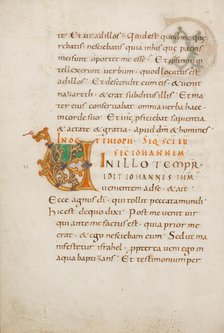 re. Et ait ad illos. Quid est quod me que
rebatis. nesciebatis quia in his patris
mei sunt oportet me esse. Et ipsi non in
tellexerunt verbum. quod locutus est
ad illos. Et descendit cum eis. & venit
nazareth. & erat subditus illis. Et mater
eius conservabat omnia verba haec in
corde suo. Et ihc proficiebat sapientia
& aetate & gratia. apud dm & homines
IN OCT THEOPH SEQ SCI EV
SEC IOHANNEM
IN ILLO TEMPR
VIDIT IOHANNES IHM
venientem ad se. & ait.
Ecce agnus di. qui tollit peccata mundi
hic est de quo dixi. Post me venit vir
qui ante me factus est. quia prior me
erat. & ego nesciebam eum. Sed ut ma
nifestetur israhel. propterea veni ego in
aqua baptizans. Et testimonium per